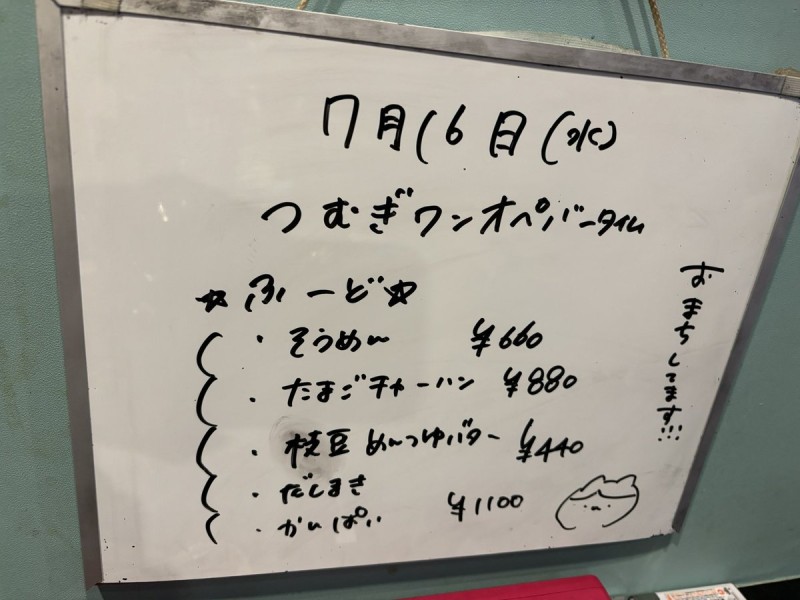 7月16日(水)
つむぎワンオペバータイム
☆ふーど☆
・そうめん ¥660
・たまごチャーハン ¥880
・枝豆めんつゆバター ¥440
・だしまき
・かんぱい ¥1100
おまちしてます!!!